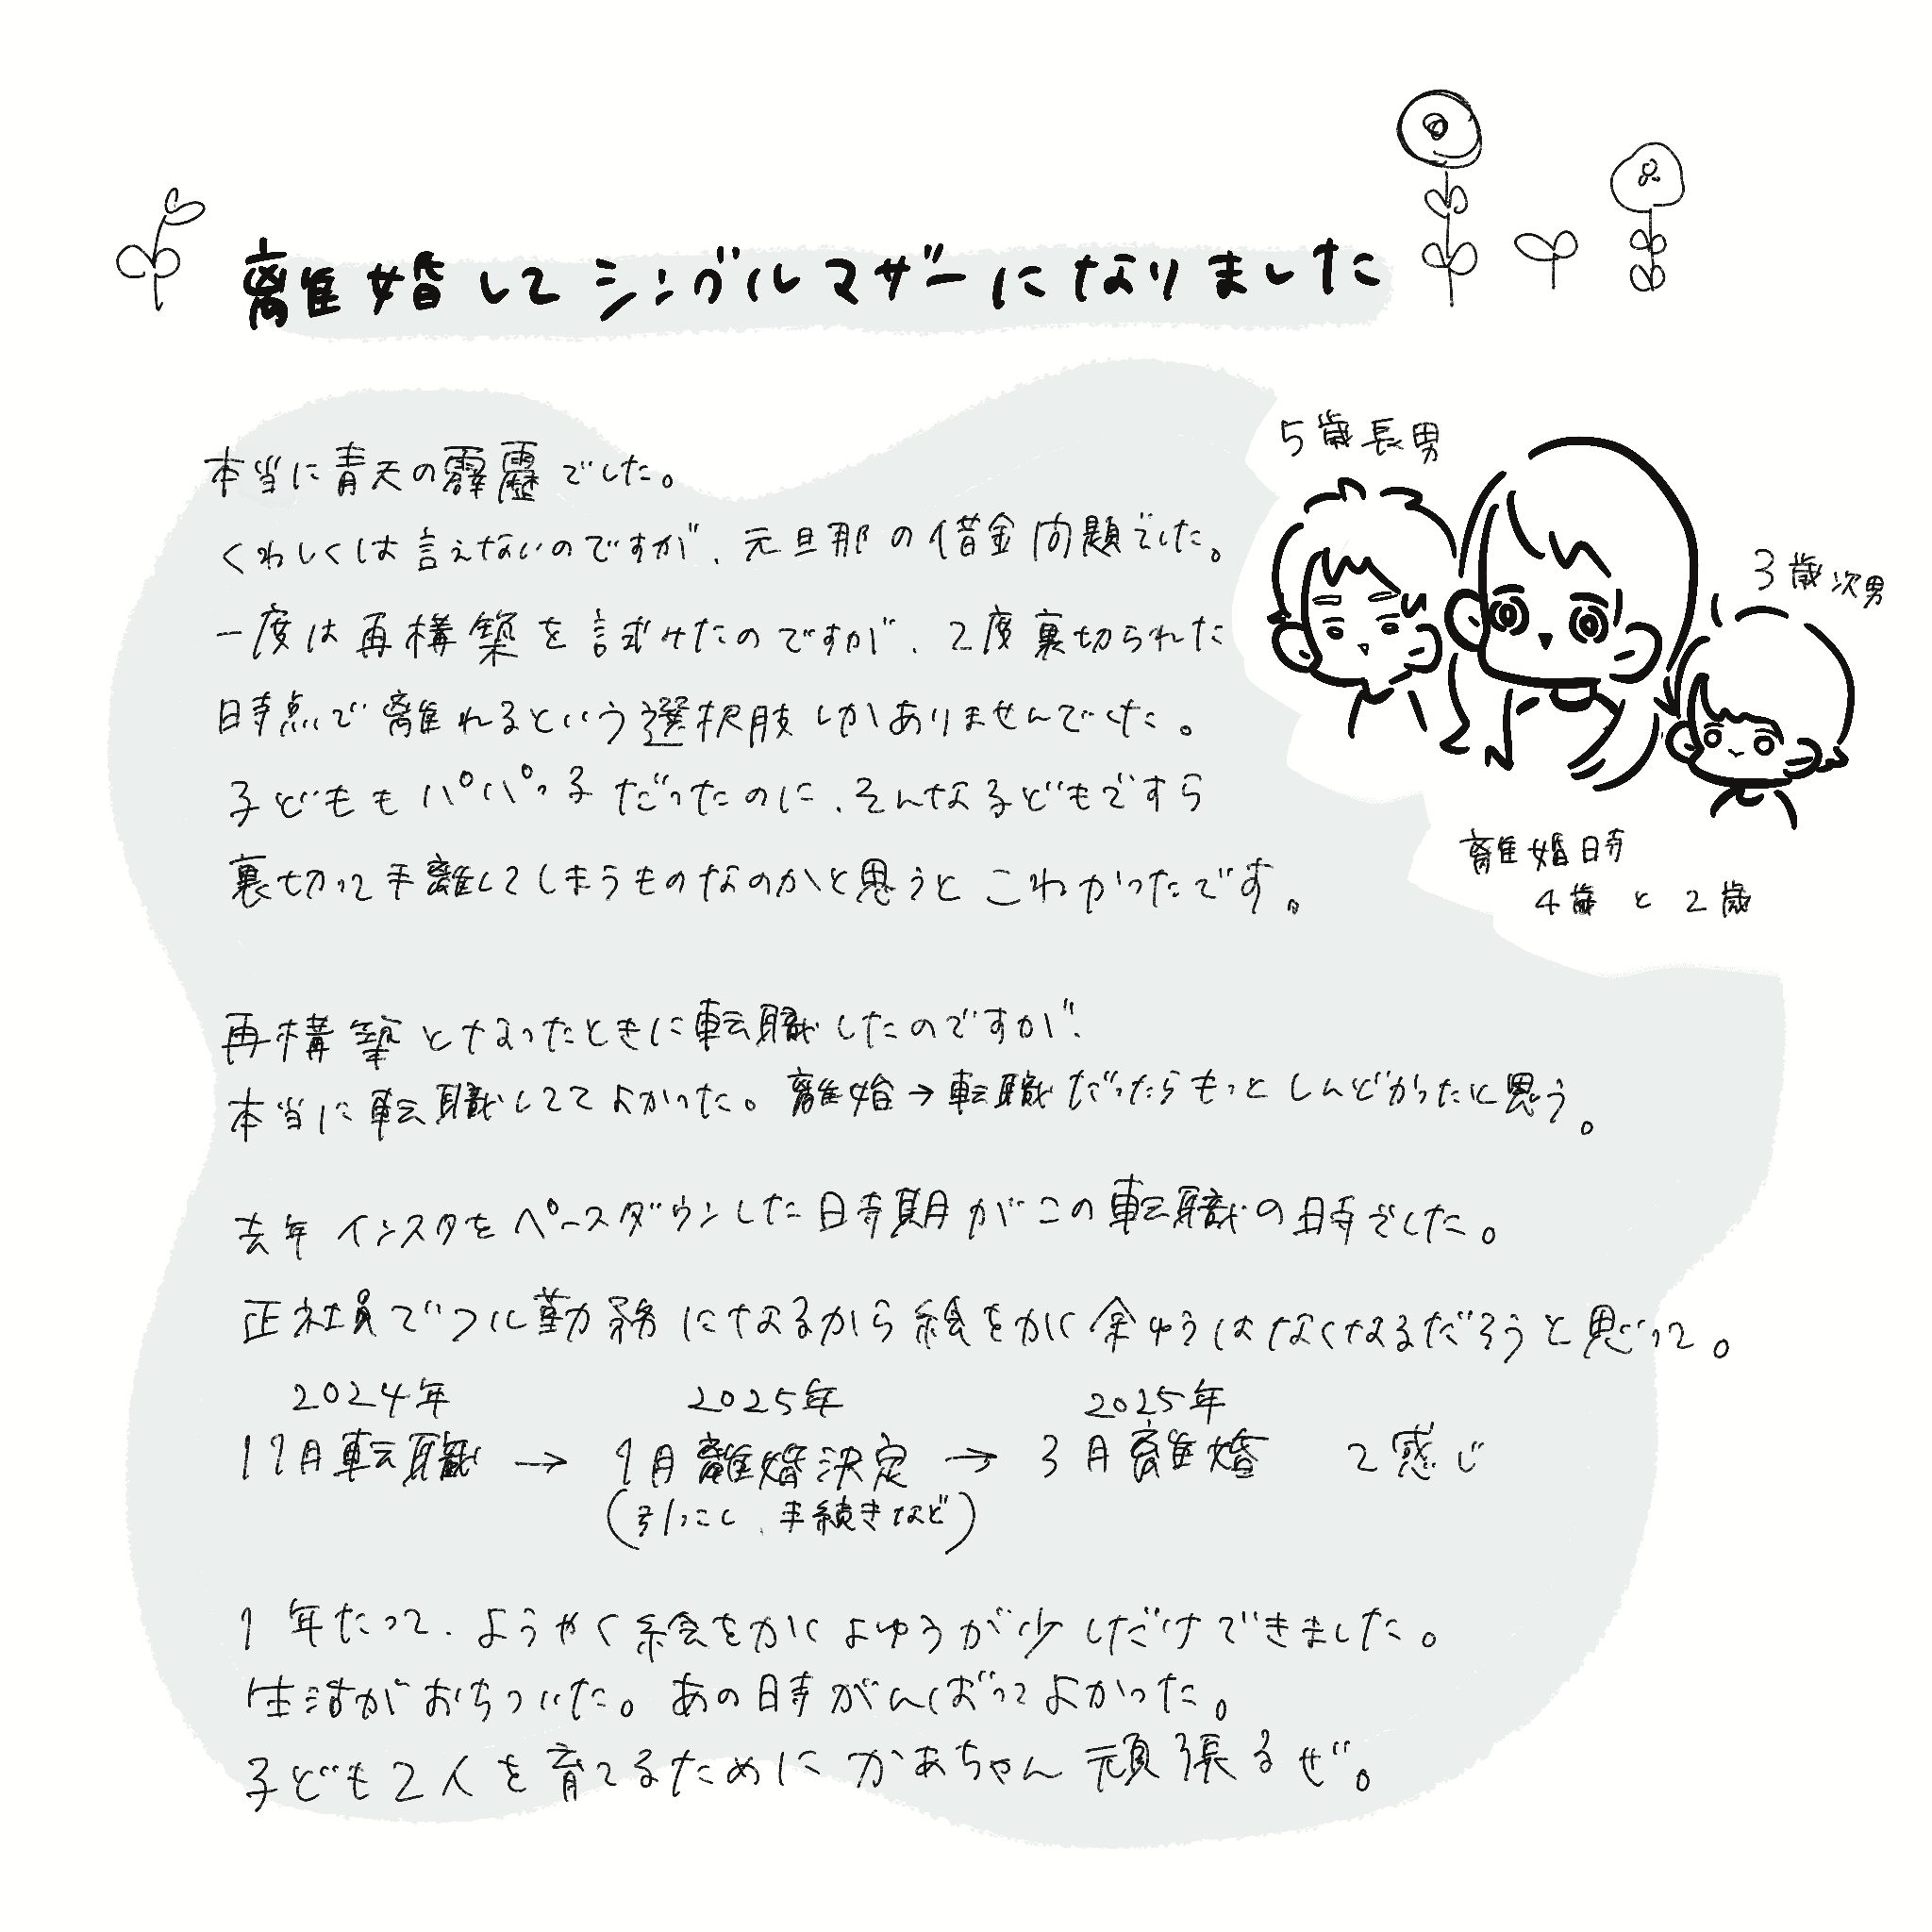 離婚してシングルマザーになりました
5歳長男
3歳次男
離婚時
4歳と2歳
本当に青天の霹靂でした。
くわしくは言えないのですが、元旦那の借金問題でした。
一度は再構築を試みたのですが、2度裏切られた
時点で離れるという選択肢しかありませんでした。
子どももパパっ子だったのに、そんな子どもですら
裏切って手離してしまうものなのかと思うとこわかったです。
再構築となったときに転職したのですが、
本当に転職しててよかった。離婚→転職だったらもっとしんどかったと思う。
去年インスタをペースダウンした時期がこの転職の時でした。
正社員でフル勤務になるから絵をかく余ゆうはなくなるだろうと思って。
2024年 2025年 2025年
11月転職 → 1月離婚決定 → 3月離婚 て感じ
(引っこし、手続きなど)
1年たって、ようやく絵をかくよゆうが少しだけできました。
生活がおちついた。あの時がんばってよかった。
子ども2人を育てるためにかあちゃん頑張るぜ。